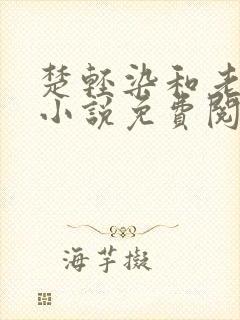 楚輕染和老
小說免費閱
海芋擬